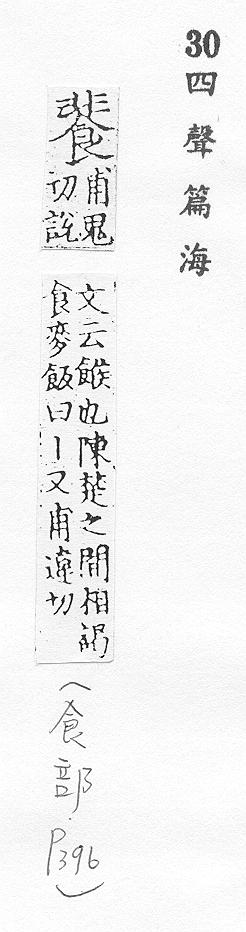 30
四聲篇海
餥
甫鬼
切說
文云餱也陳楚之間相謁
食麥飯曰丨又甫違切
(食部.P396)